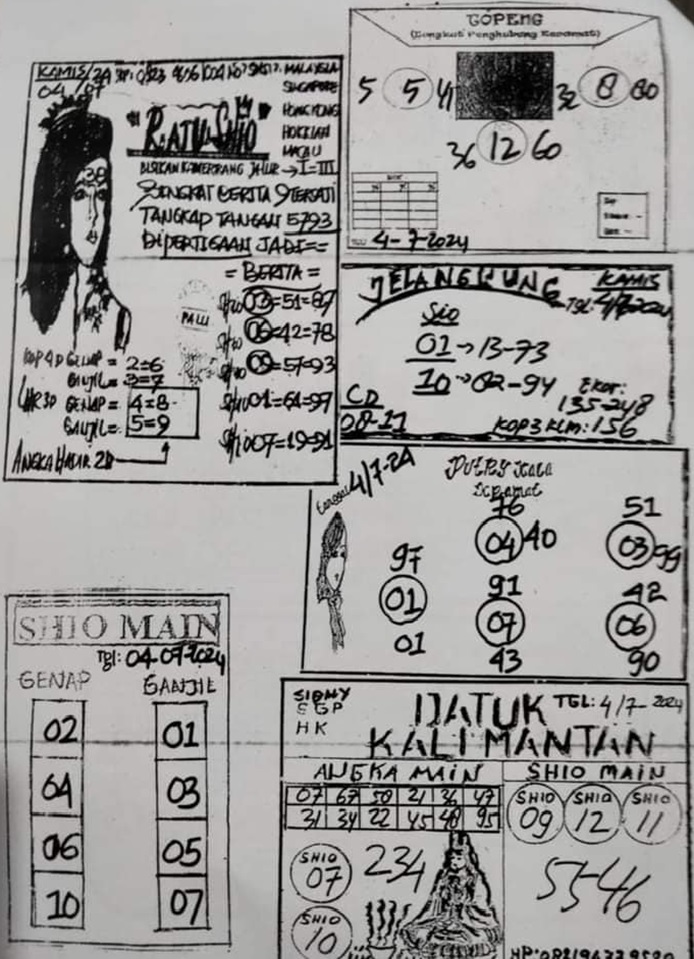 KAMIS
04/07
MALAYSIA
SINGAPORE
HONGKONG
HOKKIAN
MACAU
"RATU SHIO"
I=III
SINGKAT BERITA
TANGKAP TANGAN 5793
DIPERTIGAAN JADI==
= BERITA =
03=51=87
06=42=78
PALU
09=57=93
SHIO 01=61=97
SHIO 07=19=91
38
KOP 4D GENAP = 2=6
GANJIL = 3=7
GENAP = 4=8
GANJIL = 5=9
ANGKA HADIR 2D
GOPENG
(Bongkut Penghubung Keramat)
5 5 41
32 8 80
36 12 60
4-7-2024
JELANGKUNG
KAMIS
TGL: 4/7-2024
Sio
01→13-73
10→02-94
CD
08-11
Ekor:
135-248
KOP3 KLM: 156
4/7-24
76
04 40
51
03 99
97
01
01
91
07
43
42
06
90
SHIO MAIN
Tgl: 04-07-2024
GENAP GANJIL
02 01
04 03
06 05
10 07
SIDNY
SGP
HK
DATUK
KALIMANTAN
TGL: 4/7-2024
ANGKA MAIN
07 67 50 21 36 47
31 34 22 45 48 95
SHIO
07
234
SHIO
10
SHIO MAIN
SHIO SHIO SHIO
09 12 11
5546